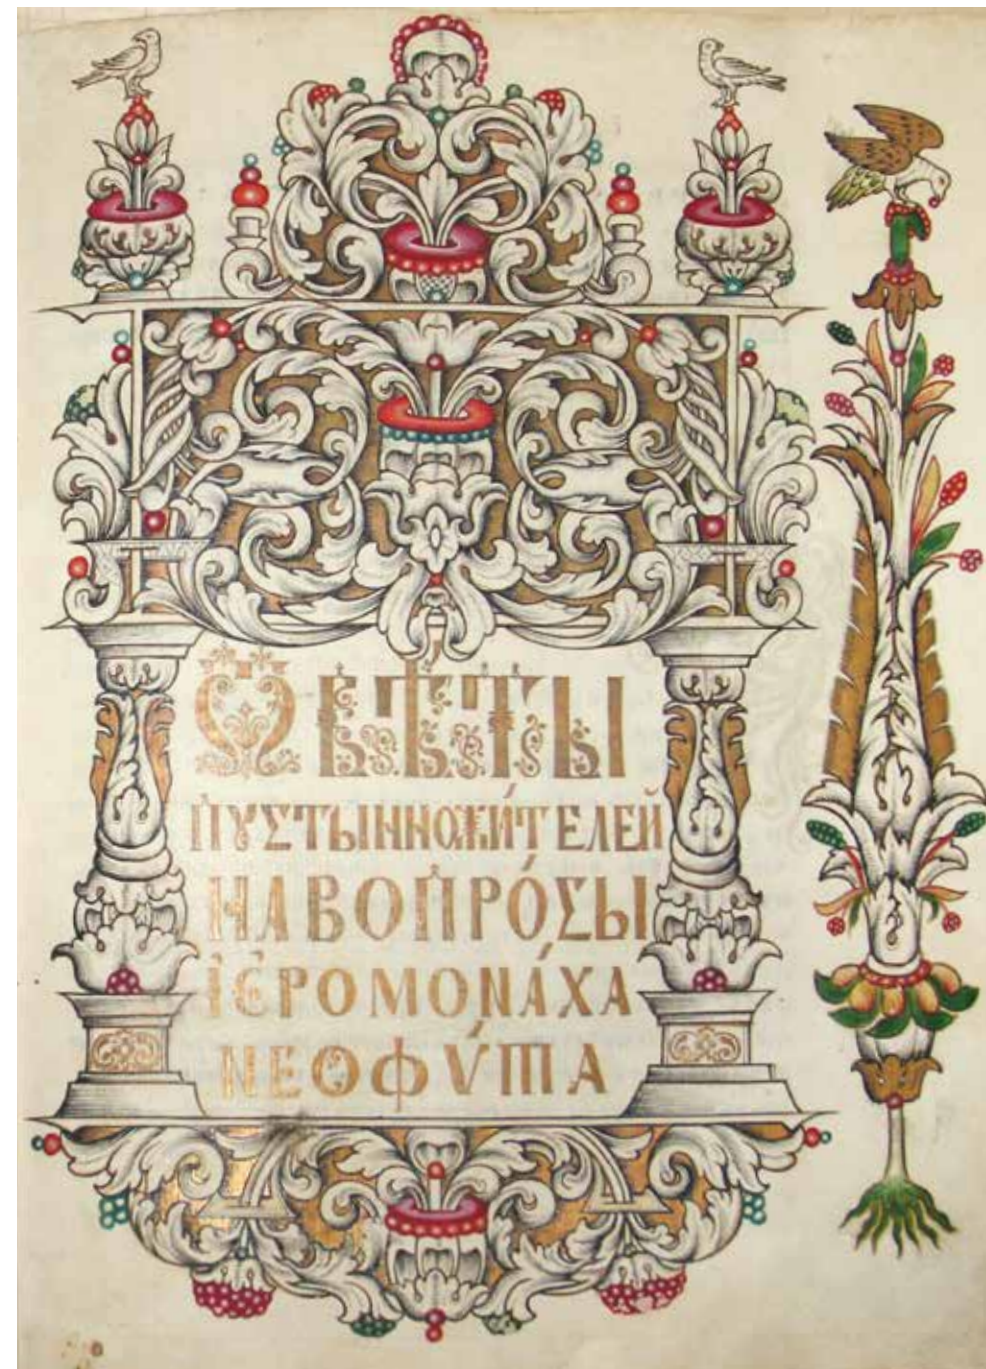 ѾВѢ́ТЫ
ПУСТЫННОЖИ́ТЕЛЕЙ
НАВОПРО́СЫ
ІЄРОМОНА́ХА
НЕОФѴ́ТА